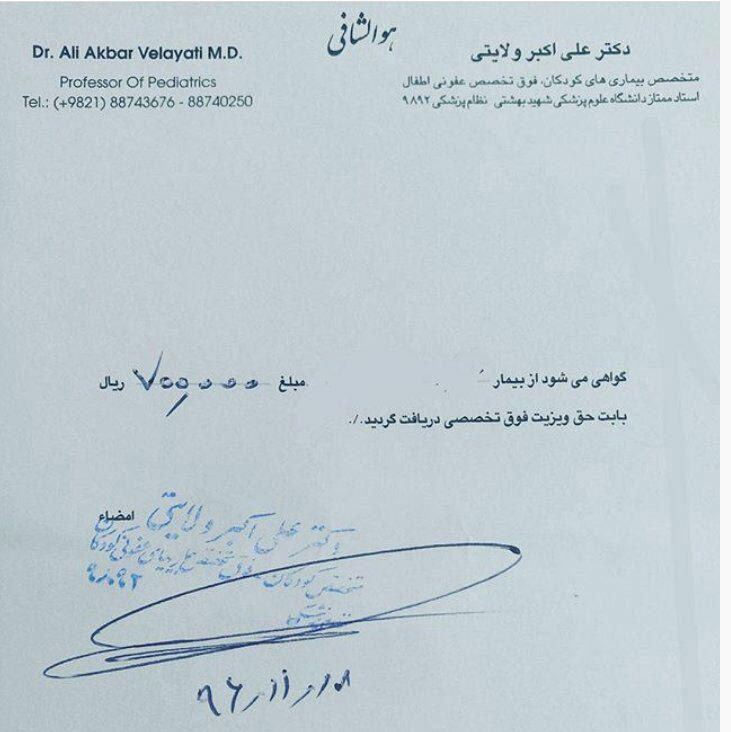 هوالشافی
Dr. Ali Akbar Velayati M.D.
Professor Of Pediatrics
Tel.: (+9821) 88743676 - 88740250
دکتر علی اکبر ولایتی
متخصص بیماری های کودکان، فوق تخصص عفونی اطفال
استاد ممتاز دانشگاه علوم پزشکی شهید بهشتی نظام پزشکی ۹۸۹۲
گواهی می شود از بیمار مبلغ ۷۰۰,۰۰۰ ریال
بابت حق ویزیت فوق تخصصی دریافت گردید./.
امضاء
دکتر علی اکبر ولایتی
متخصص کودکان فوق تخصص بیماریهای عفونی کودکان